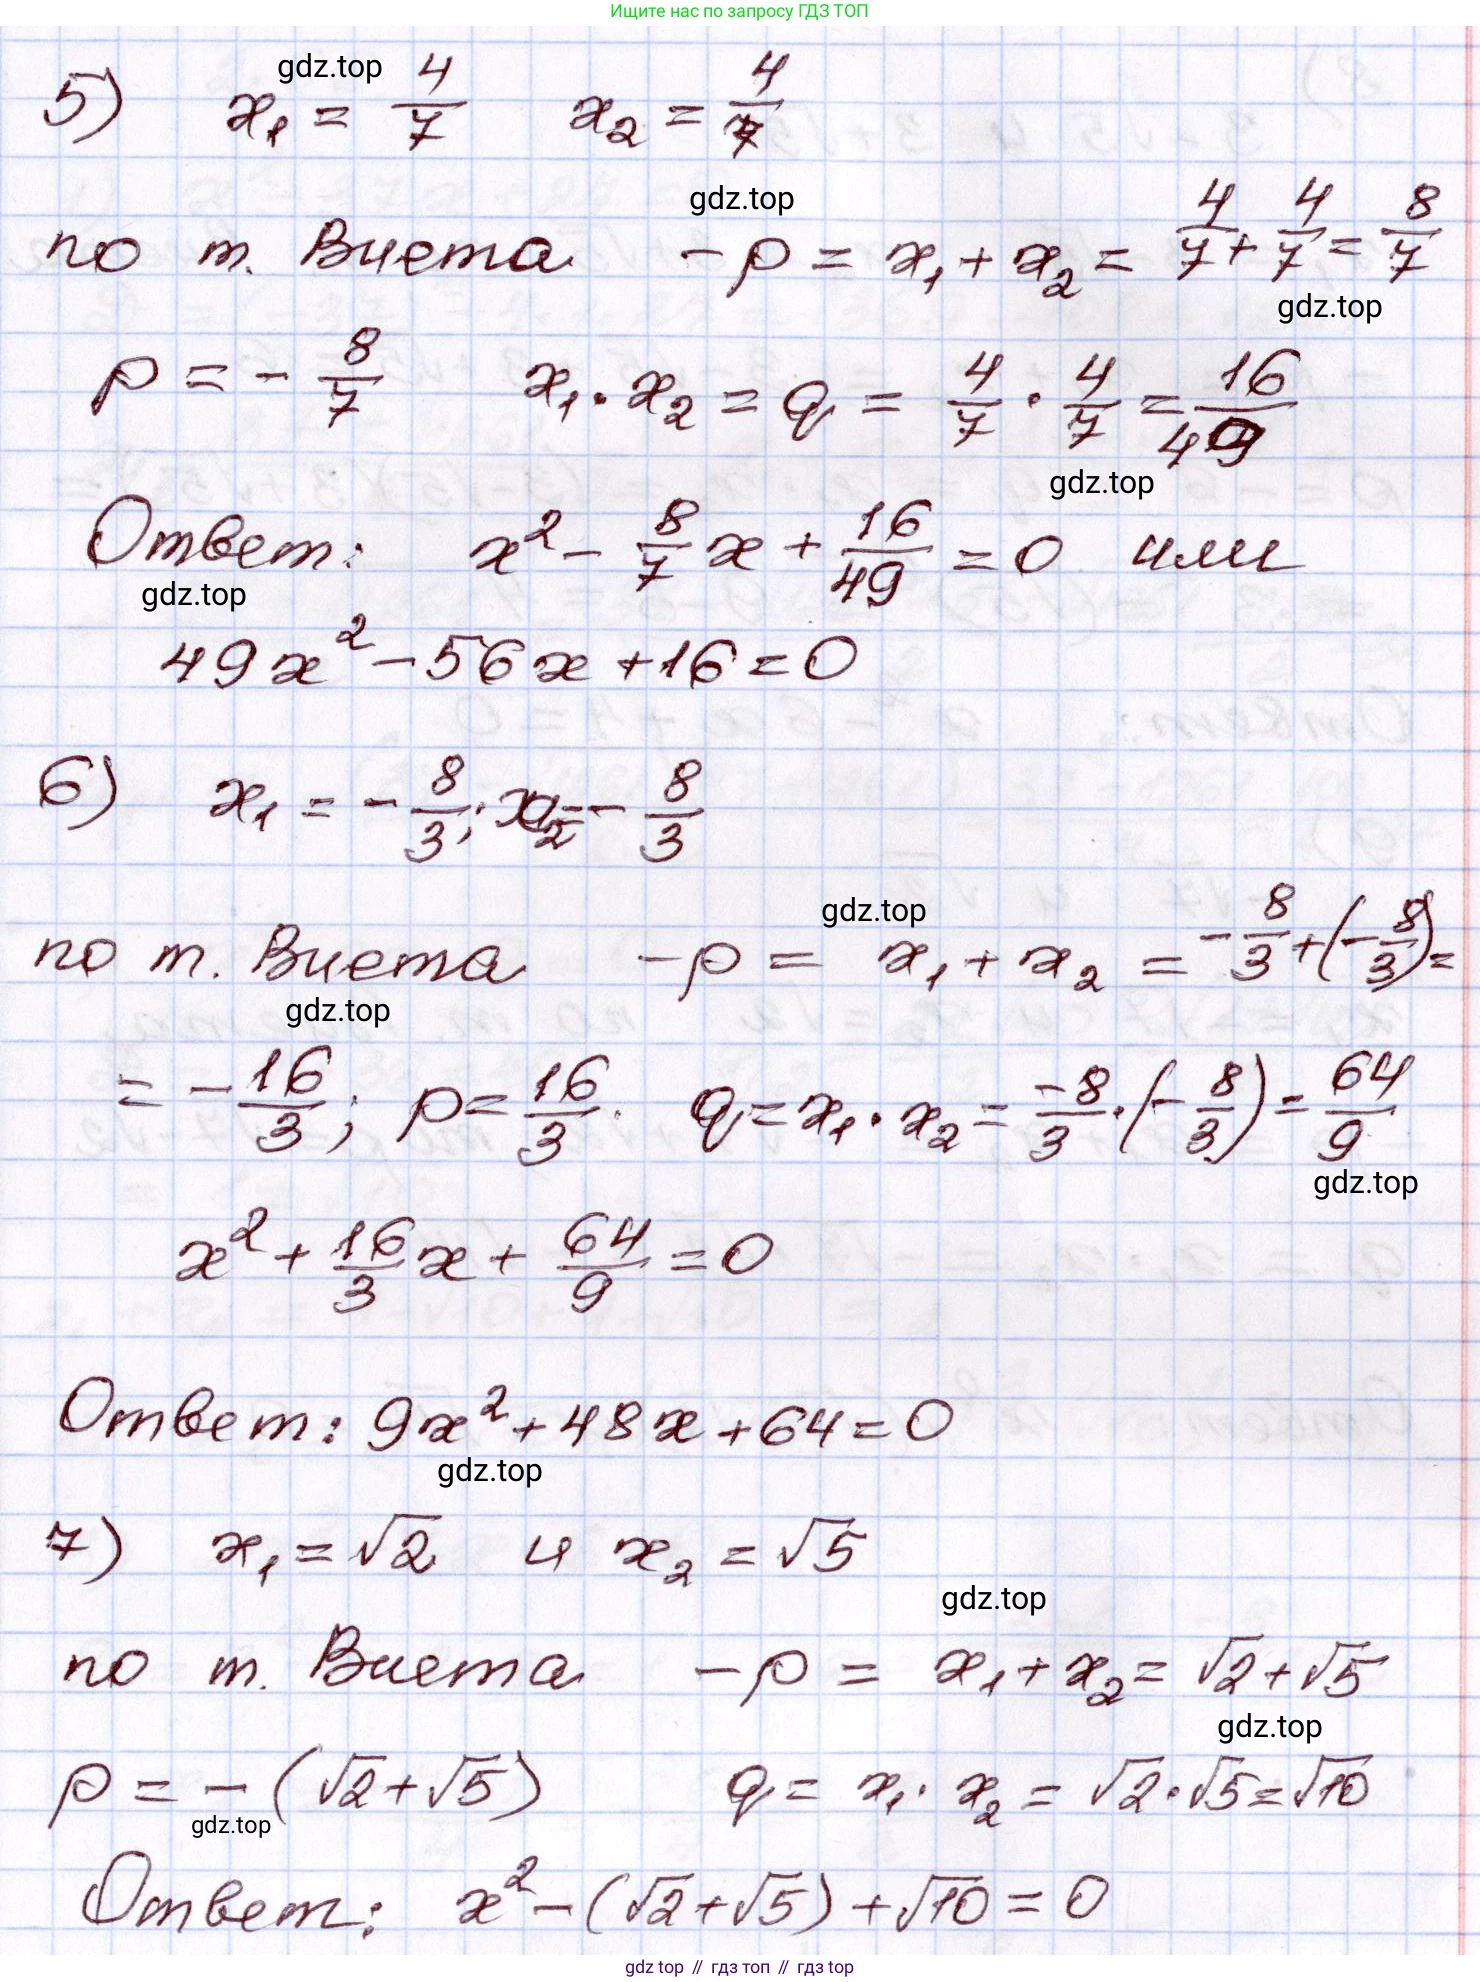 Ищите нас по запросу ГДЗ ТОП
5) x₁ = 4/7 x₂ = 4/7
gdz.top
по т. Виета -p = x₁ + x₂ = 4/7 + 4/7 = 8/7
gdz.top
gdz.top
p = - 8/7 x₁ · x₂ = q = 4/7 · 4/7 = 16/49
gdz.top
Ответ: x² - 8/7 x + 16/49 = 0 или
gdz.top
49x² - 56x + 16 = 0
6) x₁ = - 8/3; x₂ = - 8/3
gdz.top
по т. Виета -p = x₁ + x₂ = - 8/3 + (- 8/3) =
gdz.top
= - 16/3; p = 16/3. q = x₁ · x₂ = -8/3 · (- 8/3) = 64/9
gdz.top
x² + 16/3 x + 64/9 = 0
Ответ: 9x² + 48x + 64 = 0
gdz.top
7) x₁ = √2 и x₂ = √5
gdz.top
по т. Виета -p = x₁ + x₂ = √2 + √5
gdz.top
p = - (√2 + √5) q = x₁ · x₂ = √2 · √5 = √10
gdz.top
Ответ: x² - (√2 + √5) + √10 = 0
gdz top // гдз топ // гдз top